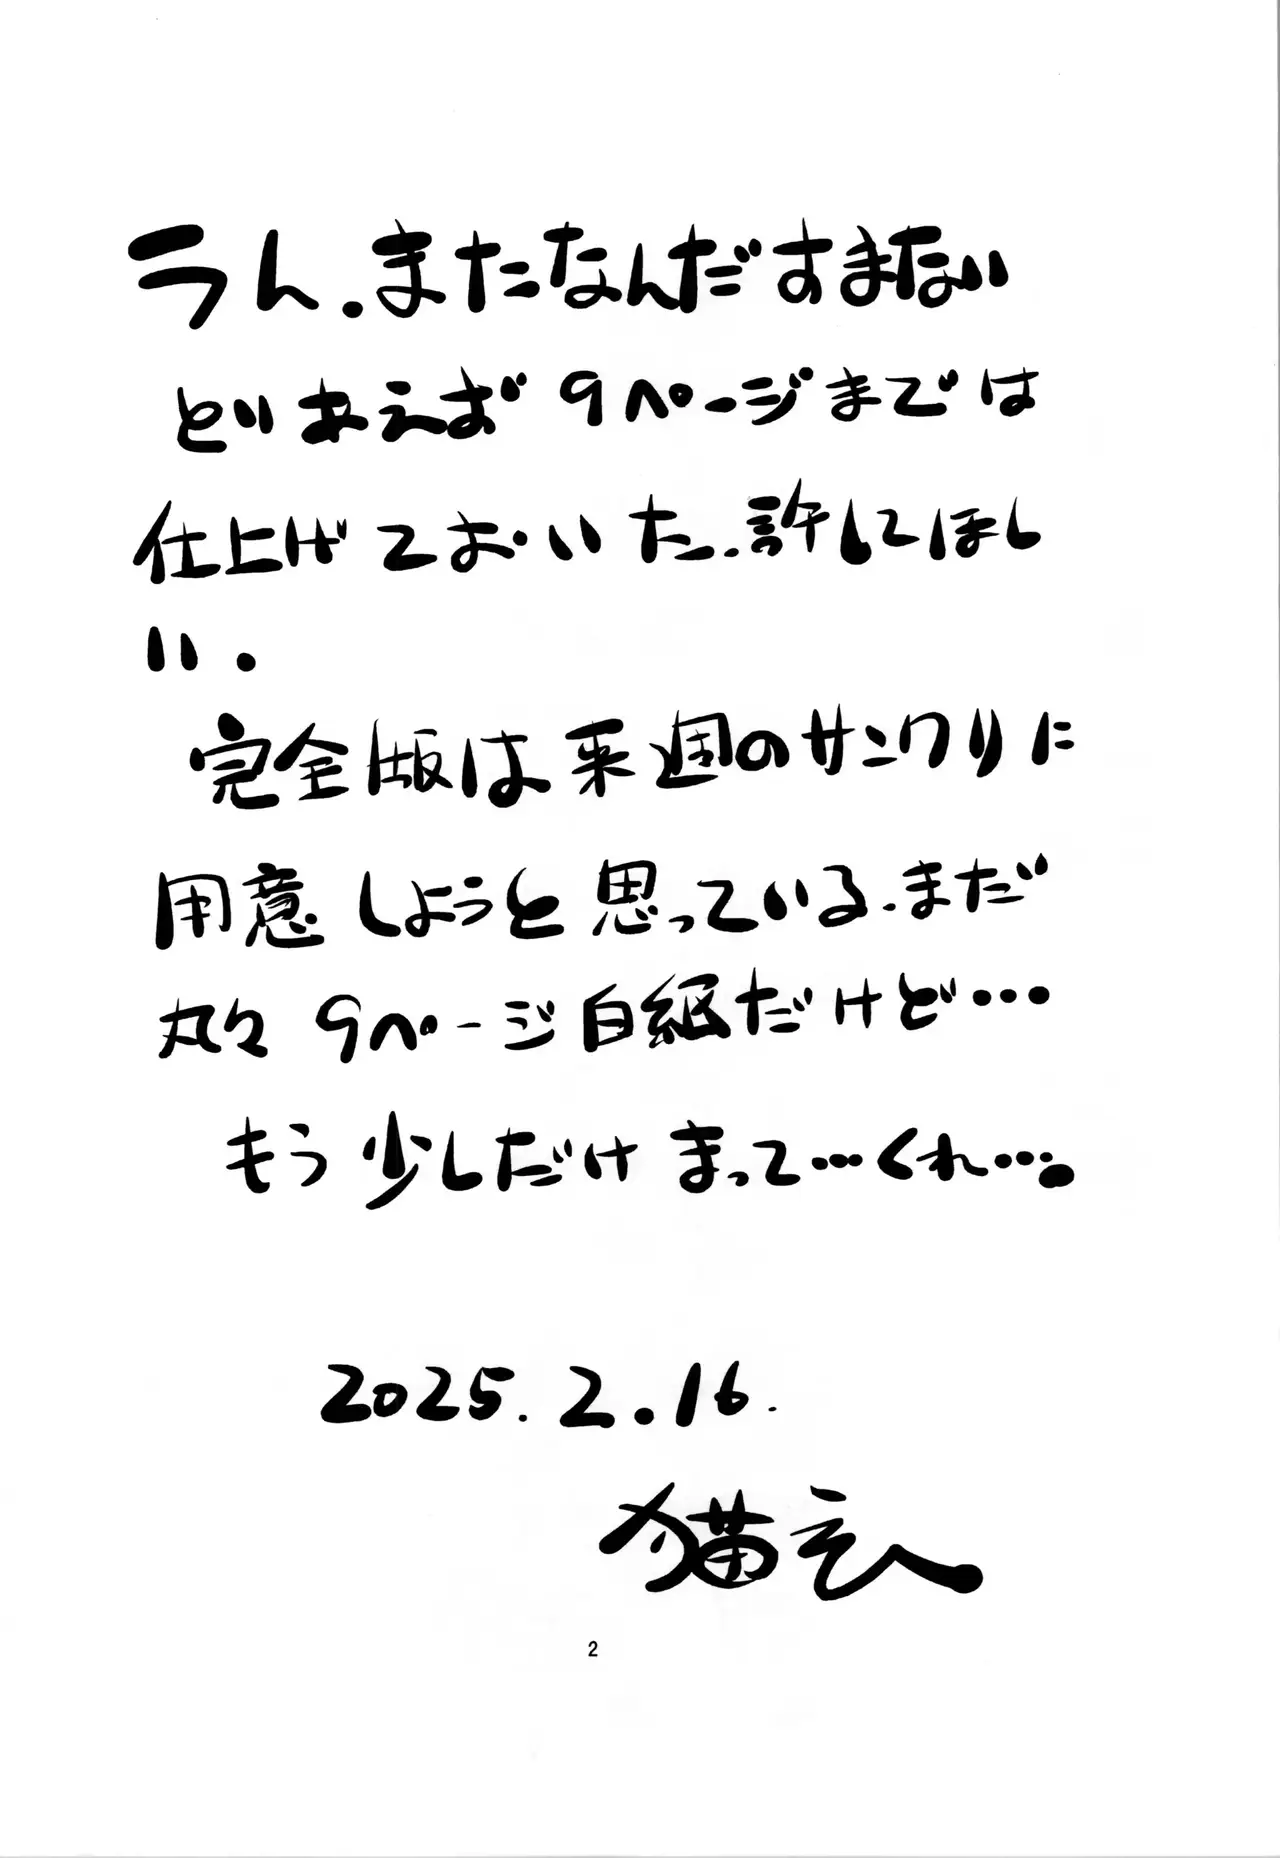 うん.またなんだすまない
とりあえず9ページまでは
仕上げておいた.許してほし
い.
完全版は来週のサンクリに
用意しようと思っている.まだ
丸々9ページ白紙だけど…
もう少しだけまって…くれ….
2025.2.16.
猫玄
2